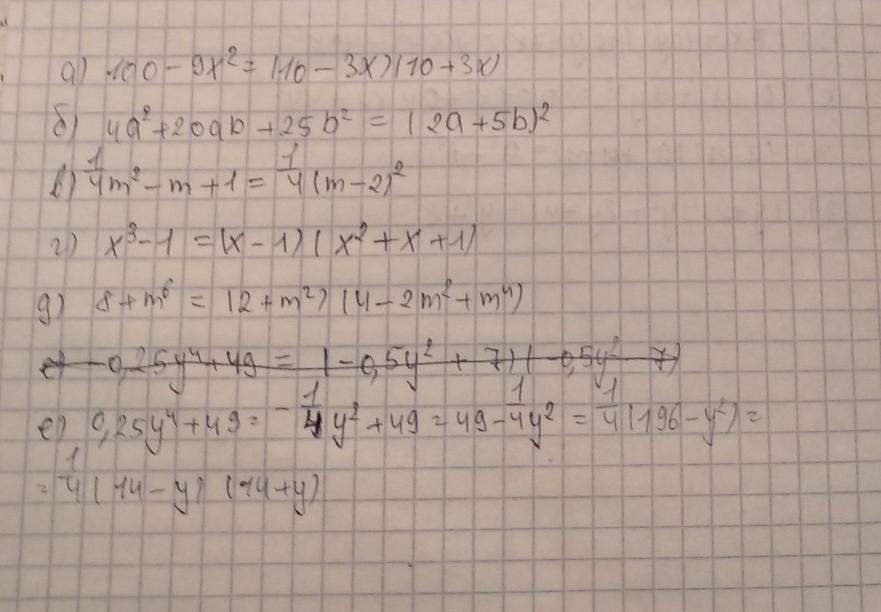 а) 100 - 9x² = (10 - 3x)(10 + 3x)
б) 4a² + 20ab + 25b² = (2a + 5b)²
в) 1/4 m² - m + 1 = 1/4 (m - 2)²
г) x³ - 1 = (x - 1)(x² + x + 1)
д) 8 + m⁶ = (2 + m²)(4 - 2m² + m⁴)
е) -0,25y⁴ + 49 = (-0,5y² + 7)(-0,5y² 7)
е) 0,25y⁴ + 49 = -1/4 y² + 49 = 49 - 1/4 y² = 1/4 (196 - y²) =
= 1/4 (14 - y) (14 + y)